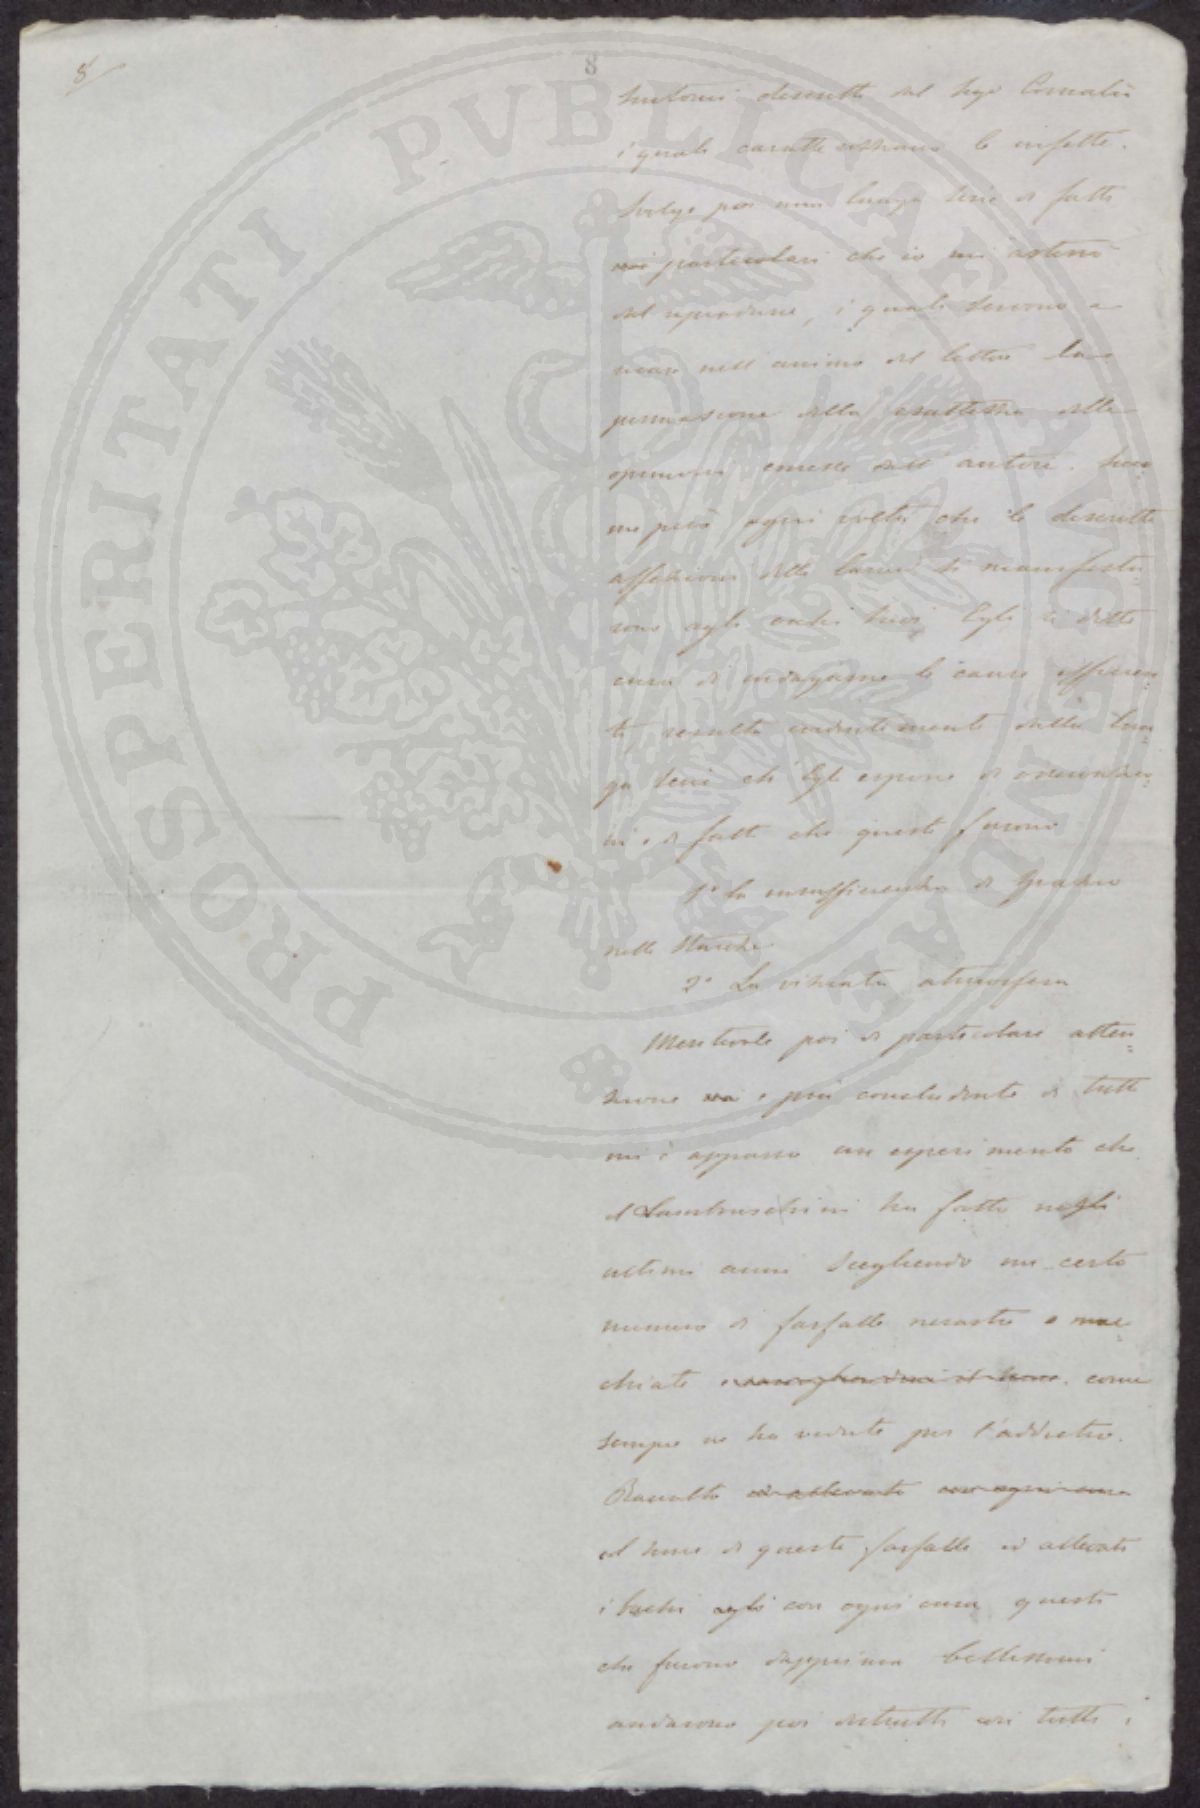 8
8
sintomi descritti dal Sigr Cornalia
i quali caratterizzano le infette.
Svolge poi una lunga serie di fatti
particolari che io mi asterrò
dal riprodurre, i quali servono a
recare nell'animo del lettore la
persuasione della esattezza delle
opinioni emesse dall'autore.
me però ogni volta che le descritte
affezioni delle larve si manifesta
rono agli occhi suoi Egli si dette
cura di indagarne le cause efficien=
ti, risulta evidentemente dalla lun=
ga serie che Egli espone di osservazio=
ni e di fatti che queste furono
1° La insufficienza di spazio
nelle stanze
2° La viziata atmosfera
Meritevole poi di particolare atten=
zione e più concludente di tutti
mi è apparso un esperimento che
il Lambruschini ha fatto negli
ultimi anni scegliendo un certo
numero di farfalle nerastre e mac=
chiate come
sempre ne ha vedute per l'addietro.
Raccolto
il seme di queste farfalle ed allevati
i bachi con ogni cura questi
che furono dapprima bellissimi
andarono poi distrutti con tutti i
PROSPERITATI PVBLICAE AVGENDAE